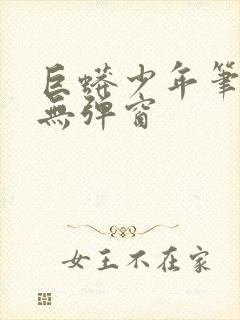 巨蟒少年筆
無彈窗
女王不在家